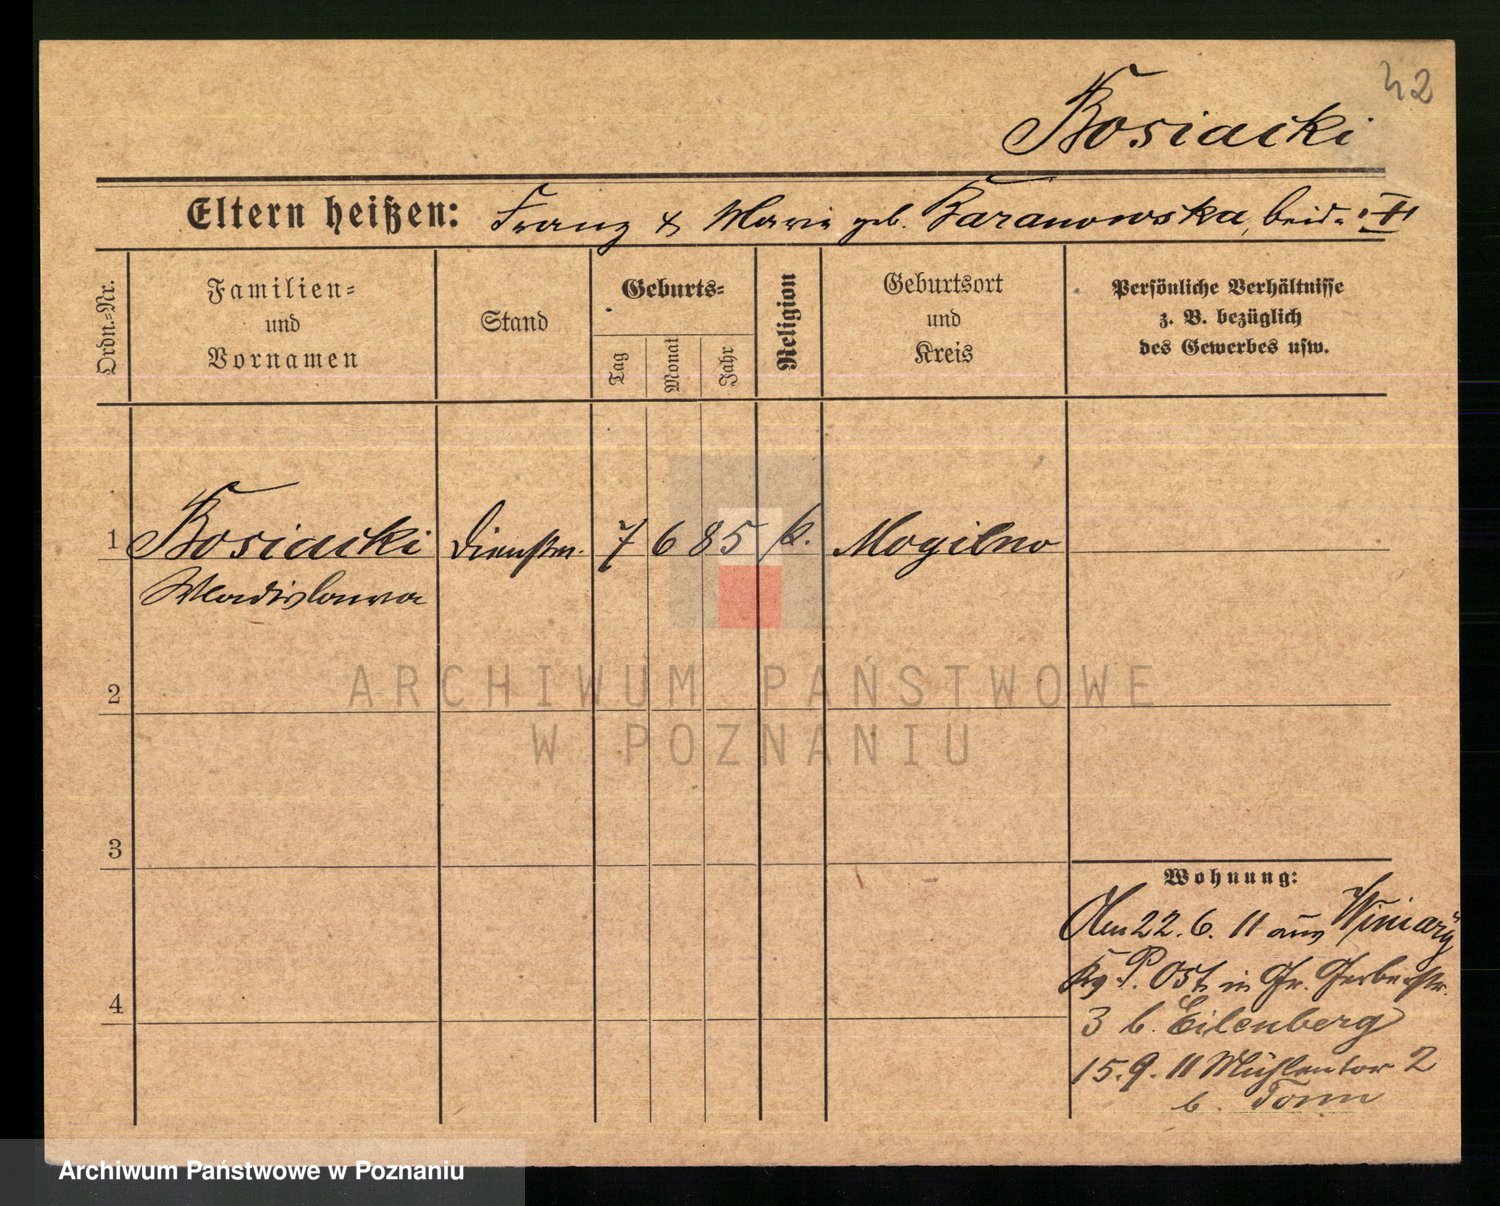 42
Bosiacki
Eltern heißen: Franz & Marie geb. Baranowska, beide
Ordn.-Nr.
Familien-
und
Vornamen
Stand
Geburts-
Tag
Monat
Jahr
Religion
Geburtsort
und
Kreis
Persönliche Verhältnisse
z. B. bezüglich
des Gewerbes usw.
1 Bosiacki Dienstm. 7 6 85 k. Mogilno
Wladislawa
2
3
4
Wohnung:
Am 22. 6. 11 aus Winiary
P. Ost in Gr. Gerberstr.
3 b. Eilenberg
15. 9. 11 Mühlentor 2
b. Tomm
ARCHIWUM PAŃSTWOWE
W POZNANIU
Archiwum Państwowe w Poznaniu